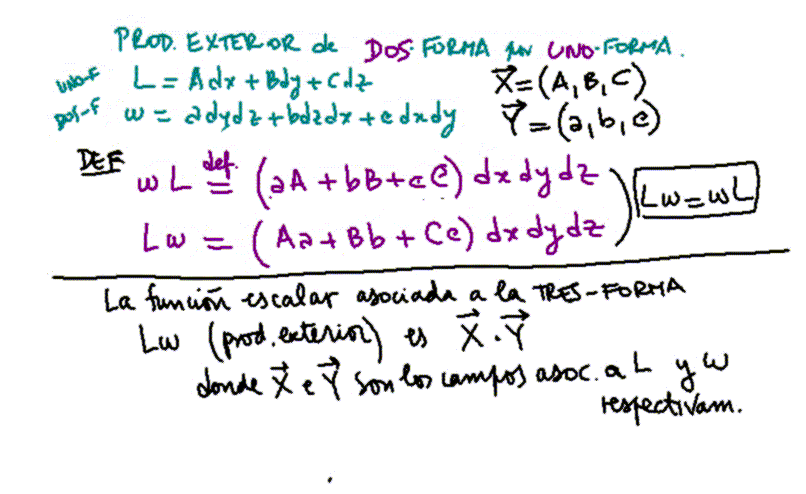 PROD. EXTERIOR de DOS-FORMA por UNO-FORMA.
UNO-F L = Adx + Bdy + Cdz X⃗ = (A, B, C)
DOS-F ω = adydz + bdzdx + cdxdy Y⃗ = (a, b, c)
DEF ωL def= (aA + bB + cC) dxdydz
Lω = (Aa + Bb + Cc) dxdydz Lω = ωL
La función escalar asociada a la TRES-FORMA
Lω (prod. exterior) es X⃗ · Y⃗
donde X⃗ e Y⃗ son los campos asoc. a L y ω
respectivam.